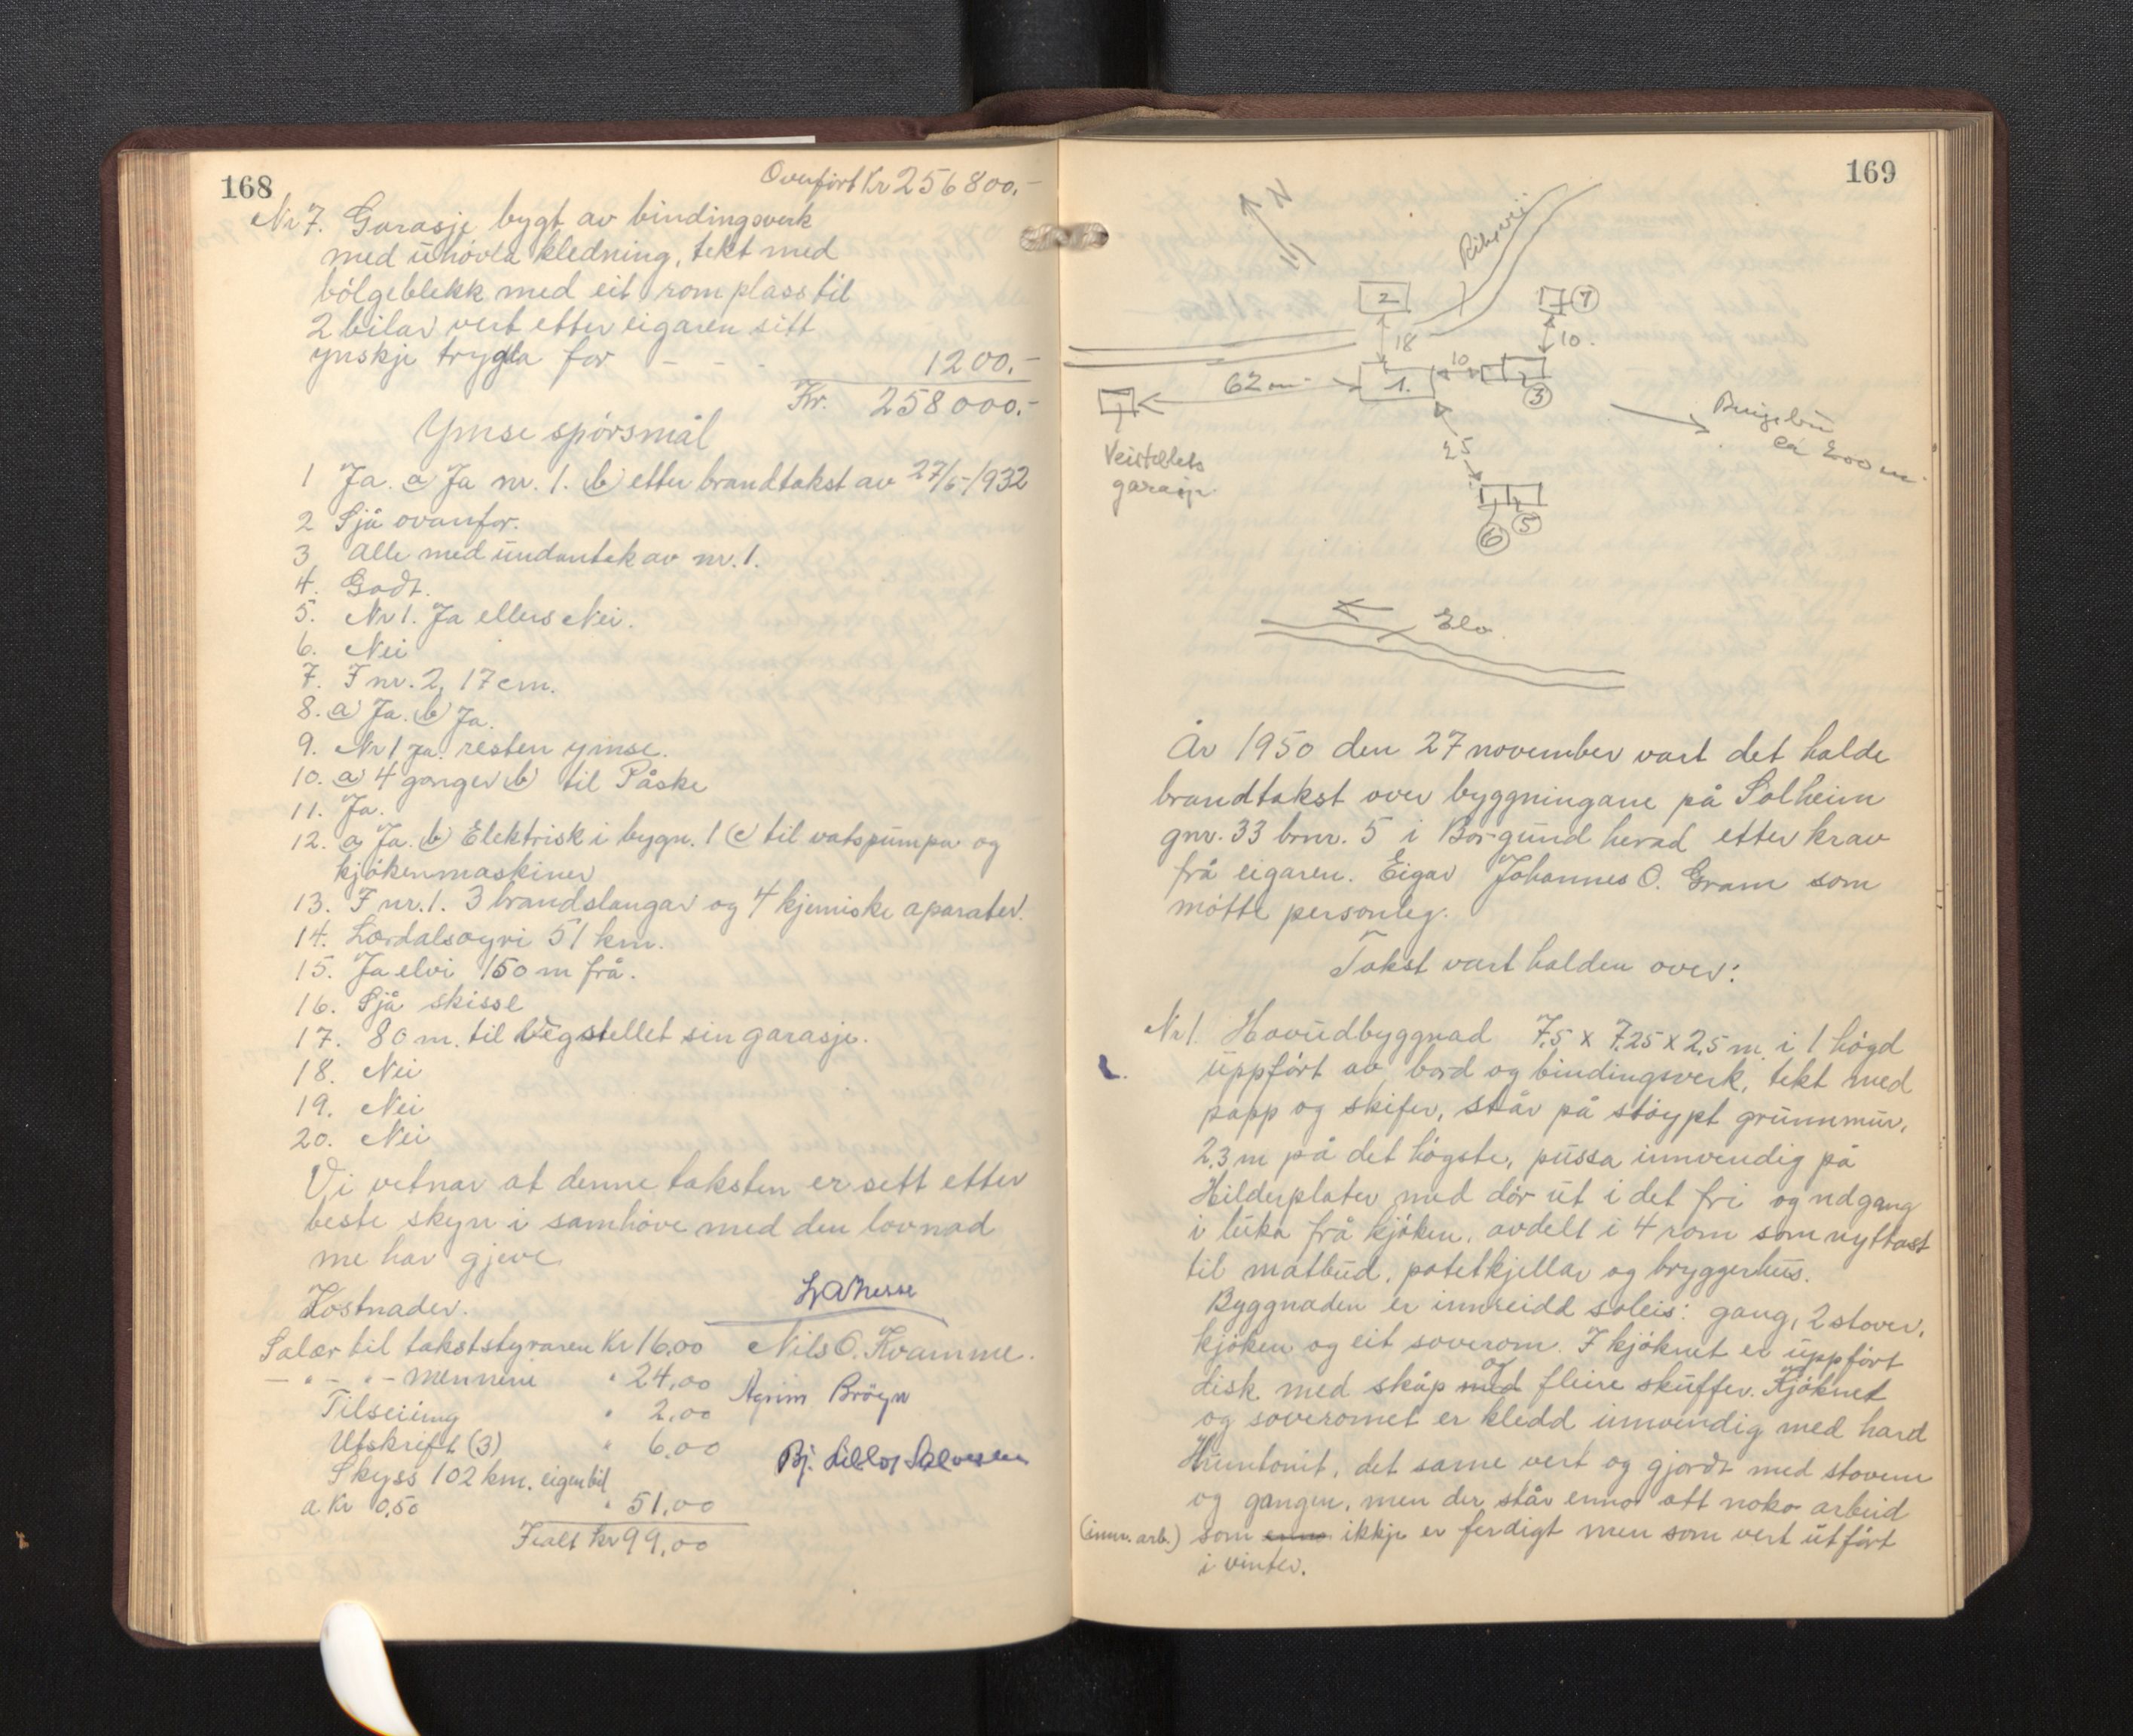 168
Ovuført Kr 256800,-
Nr 7. Garasje bygt av bindingsverk
med uhøvla kledning, tekt med
bølgeblekk med eit rom plass til
2 bilar vert etter eigaren sitt
ynskje trygda for - - - 1200,-
Kr. 258000,-
Ymse spørsmål
1 Ja. a) Ja nr. 1. b) etter brandtakst av 27/5-1932
2 Sjå ovanfor.
3 Alle med undantak av nr. 1.
4. Godt.
5. Nr 1. Ja ellers Nei.
6. Nei
7. I nr. 2, 17 cm.
8. a) Ja. b) Ja.
9. Nr 1 ja. resten ymse.
10. a) 4 gonger b) til Påske
11. Ja.
12. a Ja. b) Elektrisk i bygn. 1 c) til vatspumpa og
kjøkenmaskiner
13. I nr. 1. 3 brandslangar og 4 kjemiske aparater.
14. Lærdalsøyri 51 km.
15. Ja elvi 150 m frå.
16. Sjå skisse
17. 80 m. til Vegstellet sin garasje.
18. Nei
19. Nei
20. Nei
Vi vetnar at denne taksten er sett etter
beste skyn i samhøve med den lovnad
me har gjeve
Kostnader.
Salær til takststyraren Kr 16,00
- " - " - mennene " 24,00
Tilseiing " 2,00
Utskrift (3) " 6,00
Skyss 102 km. eigen bil
a. Kr 0,50 " 51,00
I alt kr 99,00
Nils O. Kvamme.
169
N
2
7
18
10.
62 m.
1.
10
3
Veistellets
garasje.
25
ca 200 m.
6
5
Elv.
År 1950 den 27 november vart det halde
brandtakst over byggningane på Solheim
gnr. 33 brnr. 5 i Borgund herad etter krav
frå eigaren. Eigar Johannes O. Gram som
møtte personleg.
Takst vart halden over:
Nr 1. Hovudbyggnad 7,5 x 7,25 x 2,5 m. i 1 høgd
uppført av bord og bindingsverk, tekt med
papp og skifer, står på støypt grunnmur,
2,3 m på det høgste, pussa innvendig på
Hilderplater med dør ut i det fri og ndgang
i luka frå kjøken, avdelt i 4 rom som nyttast
til matbud, potetkjellar og bryggerhus.
Byggnaden er innreidd soleis: gang, 2 stover,
kjøken og eit soverom. I kjøknet er uppført
disk med skåp og fleire skuffer. Kjøknet
og soveromet er kledd innvendig med hard
Huntonit, det same vert og gjordt med stovene
og gangen, men der står enno att noko arbeid
(innv. arb.) som enno ikkje er ferdigt men som vert utført
i vinter.